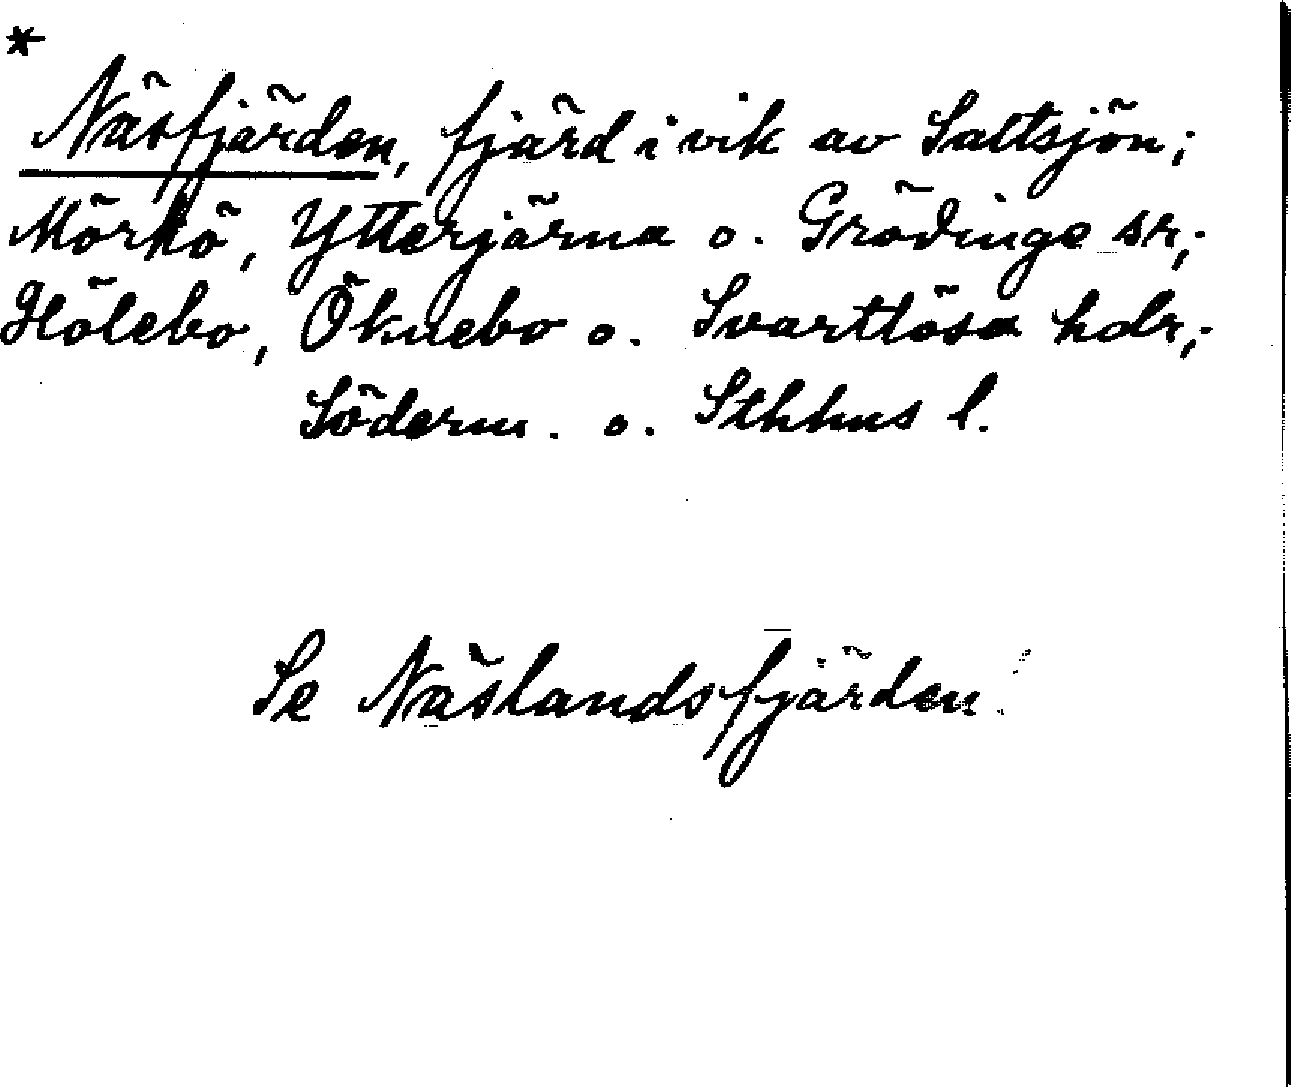 *
Näsfjärden, fjärd i vik av Saltsjön;
Mörkö, Ytterjärna o. Grödinge sr;
Hölebo, Öknebo o. Svartlösa hdr;
Söderm. o. Sthlms l.
Se Näslandsfjärden.